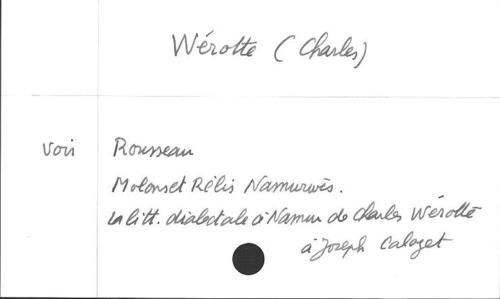 Wérotte (Charles)
voir Rousseau
Molons et Rélis Namurwès.
La litt. dialectale à Namur de Charles Wérotte
à Joseph Calozet